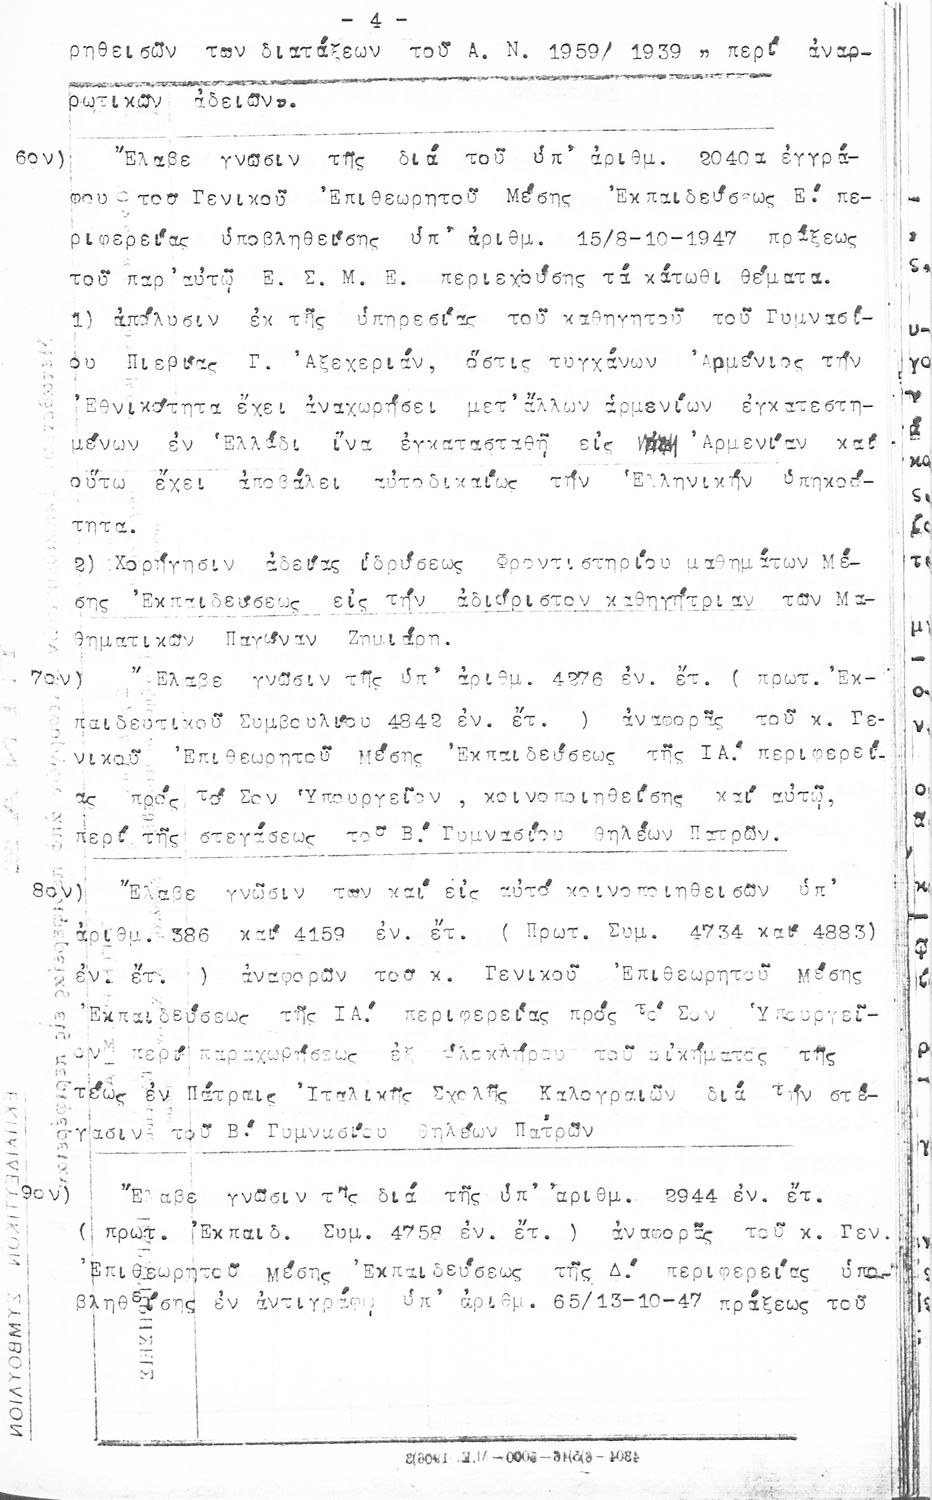 - 4 -
ρηθεισῶν των διατάξεων τοῦ Α. Ν. 1959/ 1939 " περί ἀναρ-
ρωτικῶν ἀδειῶν".
6ον) Ἔλαβε γνῶσιν τῆς διά τοῦ ὑπ' ἀριθμ. 2040α ἐγγρά-
φου του Γενικοῦ Ἐπιθεωρητοῦ Μέσης Ἐκπαιδεύσεως Ε.' πε-
ριφερείας ὑποβληθείσης ὑπ' ἀριθμ. 15/8-10-1947 πράξεως
τοῦ παρ'αὐτῷ Ε. Σ. Μ. Ε. περιεχούσης τά κάτωθι θέματα.
1) ἀπόλυσιν ἐκ τῆς ὑπηρεσίας τοῦ καθηγητοῦ τοῦ Γυμνασί-
ου Πιερίας Γ. Ἀξεχεριάν, ὅστις τυγχάνων Ἀρμένιος τήν
Ἐθνικότητα ἔχει ἀναχωρήσει μετ'ἄλλων ἀρμενίων ἐγκατεστη-
μένων ἐν Ἑλλάδι ἵνα ἐγκατασταθῇ εἰς Ἀρμενίαν καί
οὕτω ἔχει ἀποβάλει αὐτοδικαίως τήν Ἑλληνικήν ὑπηκοό-
τητα.
2) Χορήγησιν ἀδείας ἱδρύσεως Φροντιστηρίου μαθημάτων Μέ-
σης Ἐκπαιδευσεως εἰς τήν ἀδιόριστον καθηγήτριαν των Μα-
θηματικῶν Παγώναν Ζημιάρη.
7ον) Ἔλαβε γνῶσιν τῆς ὑπ' ἀριθμ. 4276 ἐν. ἔτ. ( πρωτ. Ἐκ-
παιδευτικοῦ Συμβουλίου 4842 ἐν. ἔτ. ) ἀναφορᾶς τοῦ κ. Γε-
νικοῦ Ἐπιθεωρητοῦ Μέσης Ἐκπαιδεύσεως τῆς ΙΑ.' περιφερεί-
ας πρός τό Σον Ὑπουργεῖον , κοινοποιηθείσης καί αὐτῷ,
περί τῆς στεγάσεως τοῦ Β.' Γυμνασίου θηλέων Πατρῶν.
8ον) Ἔλαβε γνῶσιν των καί εἰς αὐτό κοινοποιηθεισῶν ὑπ'
ἀριθμ. 386 καί 4159 ἐν. ἔτ. ( Πρωτ. Συμ. 4734 καί 4883)
ἐν. ἔτ. ) ἀναφορῶν του κ. Γενικοῦ Ἐπιθεωρητοῦ Μέσης
Ἐκπαιδεύσεως τῆς ΙΑ.' περιφερείας πρός τό Σον Ὑπουργεῖ-
ον περί παραχωρήσεως ἐξ ὁλοκλήρου τοῦ οἰκήματος τῆς
τέως ἐν Πάτραις Ἰταλικῆς Σχολῆς Καλογραιῶν διά τήν στέ-
γασιν τοῦ Β.' Γυμνασίου θηλέων Πατρῶν
9ον) Ἔλαβε γνῶσιν τῆς διά τῆς ὑπ' ἀριθμ. 2944 ἐν. ἔτ.
( πρωτ. Ἐκπαιδ. Συμ. 4758 ἐν. ἔτ. ) ἀναφορᾶς τοῦ κ. Γεν.
Ἐπιθεωρητοῦ Μέσης Ἐκπαιδεύσεως τῆς Δ.' περιφερείας ὑπο-
βληθείσης ἐν ἀντιγράφῳ ὑπ' ἀριθμ. 65/13-10-47 πράξεως τοῦ
ΕΚΠΑΙΔΕΥΤΙΚΟΝ ΣΥΜΒΟΥΛΙΟΝ